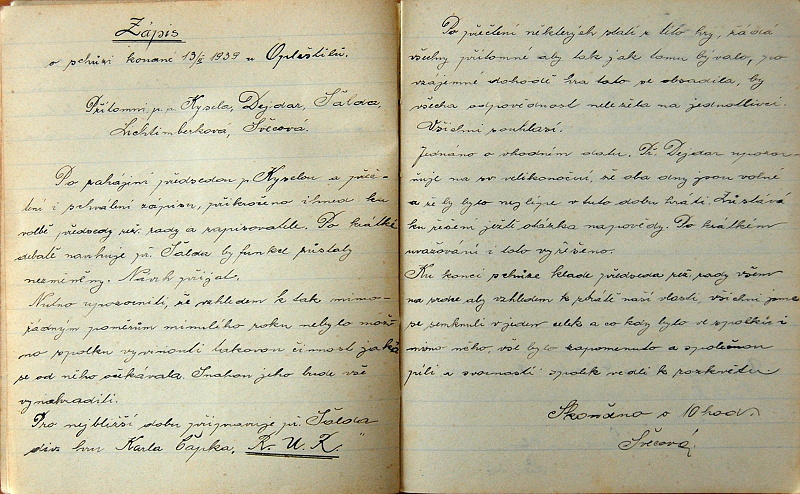 Zápis
o schůzi konané 13/II 1939 u Opleštilů.
Přítomni p.p. Kysela, Dejdar, Šalda,
Lichtimberková, Švecová.
Po zahájení předsedou p. Kyselou a pře-
tení i schválení zápisu, přikročeno ihned ku
volbě předsedy rež. rady a zapisovatele. Po krátké
debatě navrhuje př. Šalda by funkce zůstaly
nezměněny. Návrh přijat.
Nutno upozorniti, že vzhledem k tak mimo-
řádným poměrům minulého roku nebylo mož-
no spolku vyvinouti takovou činnost jaká
se od něho očekávala. Snahou jeho bude vše
vynahraditi.
Pro nejbližší dobu připravuje př. Šalda
div. hru Karla Čapka, R. U. R.
Po přečtení některých statí z této hry, žádá
všechny přítomné aby tak jak tomu bývalo, po
vzájemné dohodě hra tato se obsadila, by
všecha odpovědnost neležela na jednotlivci.
Všichni souhlasí.
Jednáno o vhodném datu. Př. Dejdar upozor-
ňuje na sv. velikonoční, že oba dny jsou volné
a že by bylo nejlépe v tuto dobu hráti. Zůstává
ku řešení ještě otázka nápovědy. Po krátkém
uvažování i toto vyřešeno.
Ku konci schůze klade předseda rež. rady všem
na srdce aby vzhledem k ztrátě naší vlasti, všichni jsme
se semknuli v jeden celek a co kdy bylo ve spolku i
mimo něho, vše bylo zapomenuto a společnou
pílí a svorností spolek vedli k rozkvětu.
Skončeno o 10 hod.
Švecová